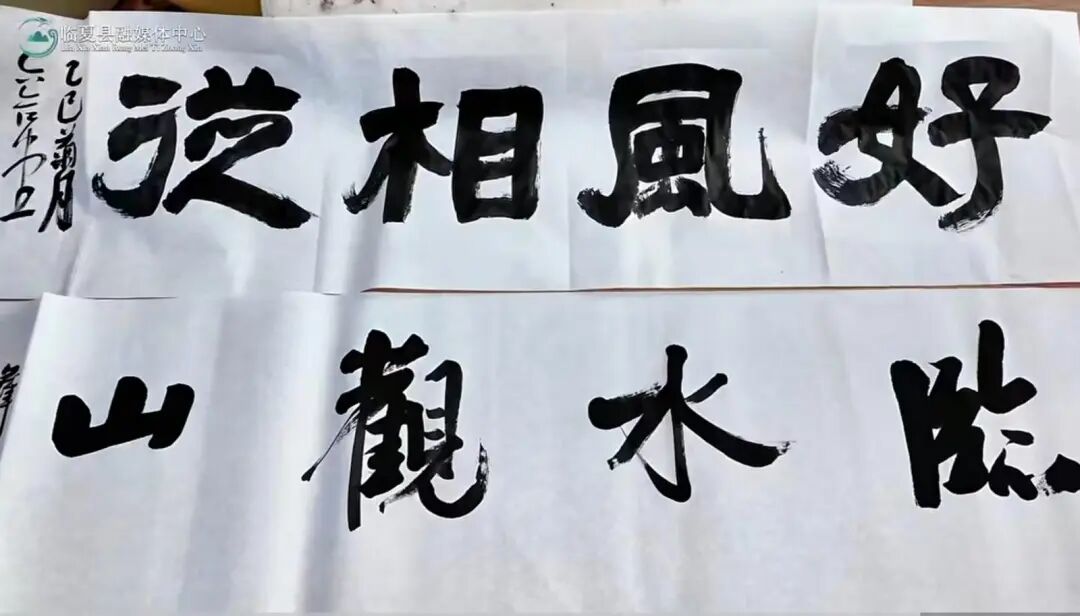 临夏县融媒体中心
Lin Xia Xian Rong Mei Ti Zhong Xin
好風相從
乙巳菊月
臨水觀山